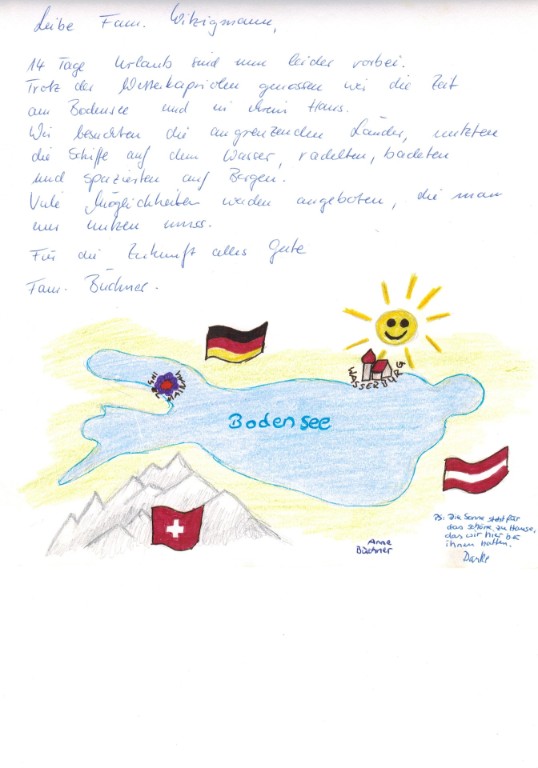 Liebe Fam. Witzigmann,
14 Tage Urlaub sind nun leider vorbei.
Trotz der Wetterkapriolen genossen wir die Zeit
am Bodensee und in ihrem Haus.
Wir besuchten die angrenzenden Länder, nutzten
die Schiffe auf dem Wasser, radelten, badeten
und spazierten auf Bergen.
Viele Möglichkeiten werden angeboten, die man
nur nutzen muss.
Für die Zukunft alles Gute
Fam. Büchner.
INSEL
MAINAU
WASSERBURG
Bodensee
PS: Die Sonne steht für
das schöne zu Hause,
das wir hier bei
ihnen hatten.
Danke
Anne
Büchner